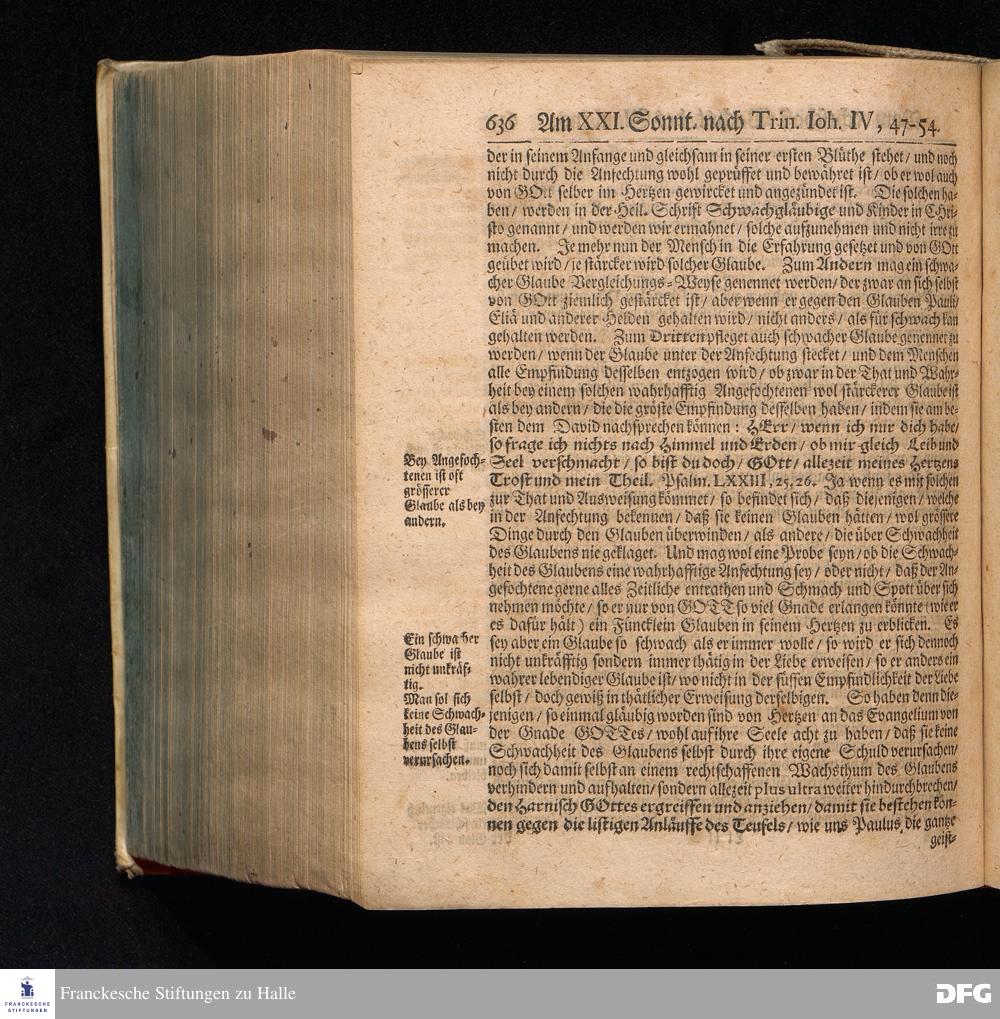 636 Am XXI. Sonnt. nach Trin. Ioh. IV, 47-54.
der in seinem Anfange und gleichsam in seiner ersten Blüthe stehet/ und noch
nicht durch die Anfechtung wohl geprüffet und bewähret ist/ ob er wol auch
von GOtt selber im Hertzen gewircket und angezündet ist. Die solchen ha-
ben/ werden in der Heil. Schrift Schwachgläubige und Kinder in CHri-
sto genannt/ und werden wir ermahnet/ solche aufzunehmen und nicht irre zu
machen. Je mehr nun der Mensch in die Erfahrung gesetzet und von GOtt
geübet wird/ je stärcker wird solcher Glaube. Zum Andern mag ein schwa-
cher Glaube Vergleichungs-Weyse genennet werden/ der zwar an sich selbst
von GOtt ziemlich gestärcket ist/ aber wenn er gegen den Glauben Pauli/
Eliä und anderer Helden gehalten wird/ nicht anders/ als für schwach kan
gehalten werden. Zum Dritten pfleget auch schwacher Glaube genennet zu
werden/ wenn der Glaube unter der Anfechtung stecket/ und dem Menschen
alle Empfindung desselben entzogen wird/ ob zwar in der That und Wahr-
heit bey einem solchen wahrhafftig Angefochtenen wol stärckerer Glaube ist
als bey andern/ die die gröste Empfindung desselben haben/ indem sie am be-
sten dem David nachsprechen können: HErr/ wenn ich nur dich habe/
so frage ich nichts nach Himmel und Erden/ ob mir gleich Leib und
Seel verschmacht/ so bist du doch/ GOtt/ allezeit meines Hertzens
Trost und mein Theil. Psalm. LXXIII, 25. 26. Ja wenn es mit solchen
zur That und Ausweisung kömmet/ so befindet sich/ daß diejenigen/ welche
in der Anfechtung bekennen/ daß sie keinen Glauben hätten/ wol grössere
Dinge durch den Glauben überwinden/ als andere/ die über Schwachheit
des Glaubens nie geklaget. Und mag wol eine Probe seyn/ ob die Schwach-
heit des Glaubens eine wahrhafftige Anfechtung sey/ oder nicht/ daß der An-
gefochtene gerne alles Zeitliche entrathen und Schmach und Spott über sich
nehmen möchte/ so er nur von GOTT so viel Gnade erlangen könnte (wie er
es dafür hält) ein Füncklein Glauben in seinem Hertzen zu erblicken. Es
sey aber ein Glaube so schwach als er immer wolle/ so wird er sich dennoch
nicht unkräfftig sondern immer thätig in der Liebe erweisen/ so er anders ein
wahrer lebendiger Glaube ist/ wo nicht in der süssen Empfindlichkeit der Liebe
selbst/ doch gewiß in thätlicher Erweisung derselbigen. So haben denn die-
jenigen/ so einmal gläubig worden sind von Hertzen an das Evangelium von
der Gnade GOTTes/ wohl auf ihre Seele acht zu haben/ daß sie keine
Schwachheit des Glaubens selbst durch ihre eigene Schuld verursachen/
noch sich damit selbst an einem rechtschaffenen Wachsthum des Glaubens
verhindern und aufhalten/ sondern allezeit plus ultra weiter hindurchbrechen/
den Harnisch GOttes ergreiffen und anziehen/ damit sie bestehen kön-
nen gegen die listigen Anläuffe des Teufels/ wie uns Paulus die gantze
geist-
Bey Angefoch-
tenen ist oft
grösserer
Glaube als bey
andern.
Ein schwacher
Glaube ist
nicht unkräf-
tig.
Man sol sich
keine Schwach-
heit des Glau-
bens selbst
verursachen.
FRANCKESCHE
STIFTUNGEN
Franckesche Stiftungen zu Halle
DFG